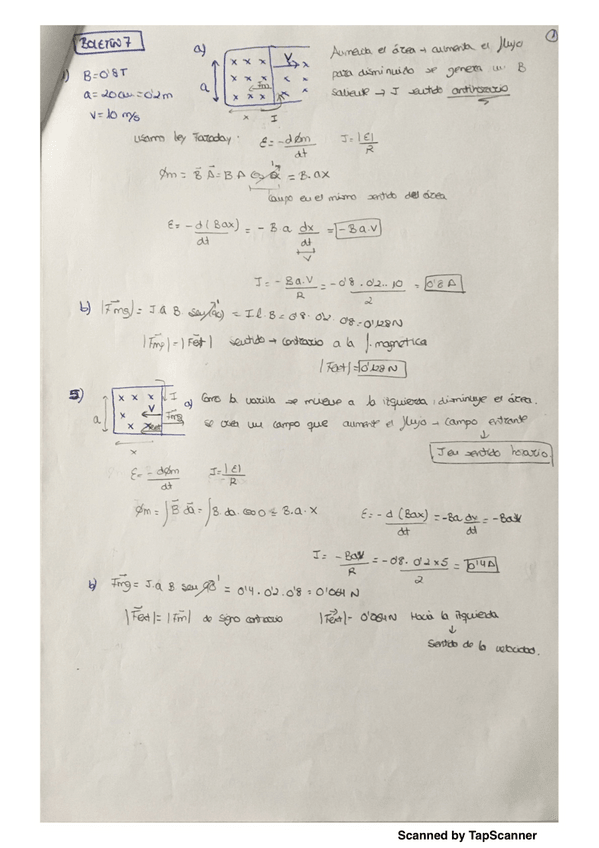 BOLETÍN 7
1
a)
x x x V
x x x x x
x x x Fm x x
a
x I
Aumenta el área → aumenta el flujo
para disminuirlo se genera un B
saliente → I sentido antihorario
1) B=0'8T
a=20cm=0'2m
V=10 m/s
Usamos ley Faraday: ε=-dØm/dt I=|ε|/R
Øm = B A = B A cos α = B·ax
1
Campo en el mismo sentido del área
ε=-d(Bax)/dt = -Ba dx/dt = -Ba·V
V
I=-Ba·V/R = -0'8·0'2·10/2 = 0'8A
b) |Fmg|= I·a B sen(90) = I l·B=0'8·0'2·0'8=0'128N
|Fmg|=|Fext| sentido → contrario a la f. magnética
|Fext|=0'128N
5)
x x x I
x V Fmg
x x Fext
a
x
a) Como la varilla se mueve a la izquierda, disminuye el área.
se crea un campo que aumente el flujo → campo entrante
I en sentido horario
ε=-dØm/dt I=|ε|/R
Øm=∫B da=∫B·da·cos0=B·a·x ε=-d(Bax)/dt=-Ba dx/dt=-BaV
I=-BaV/R=-0'8·0'2×5/2=0'4A
b) Fmg=I·a B sen 90 = 0'4·0'2·0'8=0'064 N
|Fext|=|Fm| de signo contrario |Fext|=0'064N Hacia la izquierda
Sentido de la velocidad.
Scanned by TapScanner